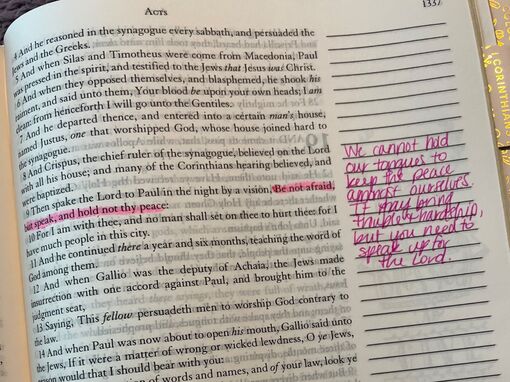 ACTS
1337
4 And he reasoned in the synagogue every sabbath, and persuaded the
Jews and the Greeks.
5 And when Silas and Timotheus were come from Macedonia, Paul
was pressed in the spirit, and testified to the Jews that Jesus was Christ.
6 And when they opposed themselves, and blasphemed, he shook his
raiment, and said unto them, Your blood be upon your own heads; I am
clean: from henceforth I will go unto the Gentiles.
7 And he departed thence, and entered into a certain man's house,
named Justus, one that worshipped God, whose house joined hard to
the synagogue.
8 And Crispus, the chief ruler of the synagogue, believed on the Lord
with all his house; and many of the Corinthians hearing believed, and
were baptized.
9 Then spake the Lord to Paul in the night by a vision, Be not afraid,
but speak, and hold not thy peace:
10 For I am with thee, and no man shall set on thee to hurt thee for I
have much people in this city.
11 And he continued there a year and six months, teaching the word of
God among them.
12 And when Gallio was the deputy of Achaia, the Jews made
insurrection with one accord against Paul, and brought him to the
judgment seat,
13 Saying, This fellow persuadeth men to worship God contrary to
the law.
14 And when Paul was now about to open his mouth, Gallio said unto
the Jews, If it were a matter of wrong or wicked lewdness, O ye Jews,
reason would that I should bear with you:
question of words and names, and of your law, look ye
We cannot hold
our tongues to
keep the peace
amongst ourselves.
It may bring
trouble & hardship,
but you need to
speak up for
the Lord.
CORINTHIANS